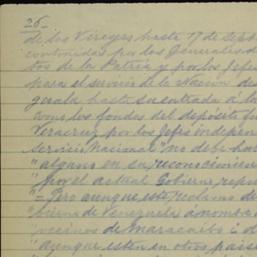 26-
de los Vireyes hasta 17 de Set
contraidas por los Generales
tos de la Patria y por los Jefes
para el servicio de la Nacion de
gerala hasta su entrada á la
como los fondos del depósito
Veracruz por los Jefes indepen
Servicio Nacional "no debe ha
"alguno en su reconocimien
"por el actual Gobierno repu
"= Pero aunque este reclamo de
"bierno de Venezuela á nombre
"vecinos de Maracaibo ó d
"aunque esten en otros paise